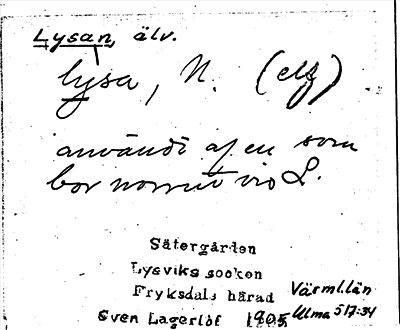 Lysan, älv.
lysa, N. (elf)
användt af en som
bor norrut vid L.
Sätergården
Lysviks socken
Fryksdals härad Värml.län
Sven Lagerlöf 1905 Ulma 517:34